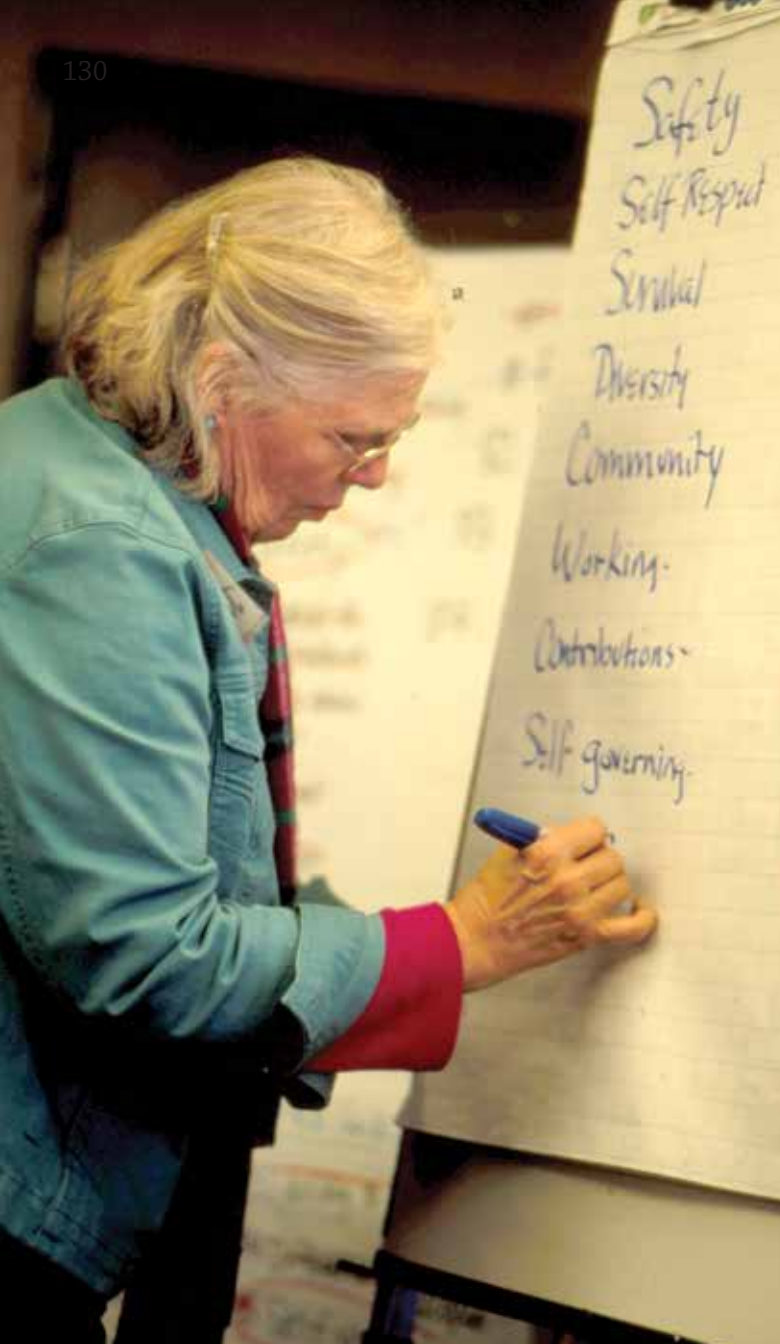 130
Safety
Self Respect
Survival
Diversity
Community
Working.
Contributions-
Self governing.